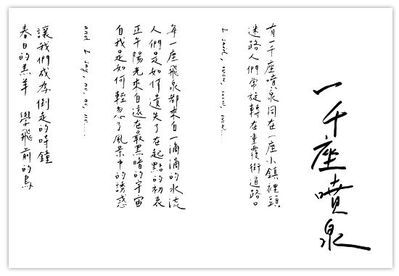 一千座噴泉
有一千座噴泉同在一座小鎮裡頭
迷路人們常旋轉在重複街道路口。
每一座飛泉都來自一滴滴的水流
人們是如何遺失了在起點的初衷
正午陽光來自遠在最黑暗的宇宙
自我是如何輕忽了風景中的誘惑
and I say, no, no, no...
讓我們成為倒走的時鐘
春日的羔羊 學飛前的鳥